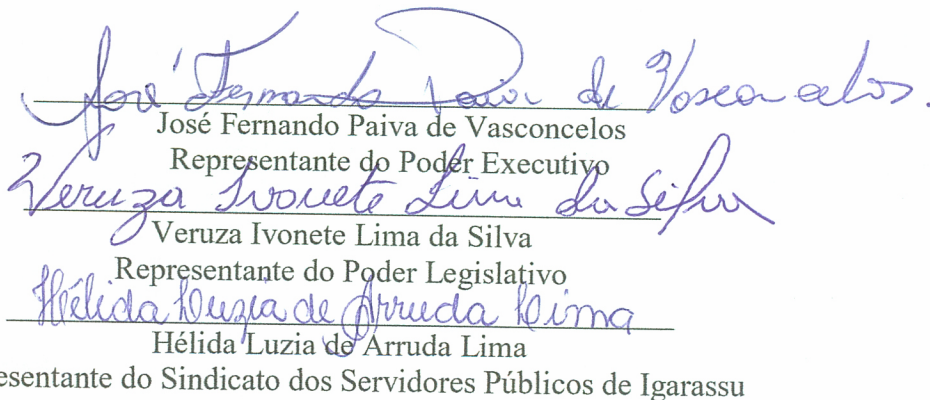 José Fernando Paiva de Vasconcelos.
José Fernando Paiva de Vasconcelos
Representante do Poder Executivo
Veruza Ivonete Lima da Silva
Veruza Ivonete Lima da Silva
Representante do Poder Legislativo
Hélida Luzia de Arruda Lima
Hélida Luzia de Arruda Lima
esentante do Sindicato dos Servidores Públicos de Igarassu